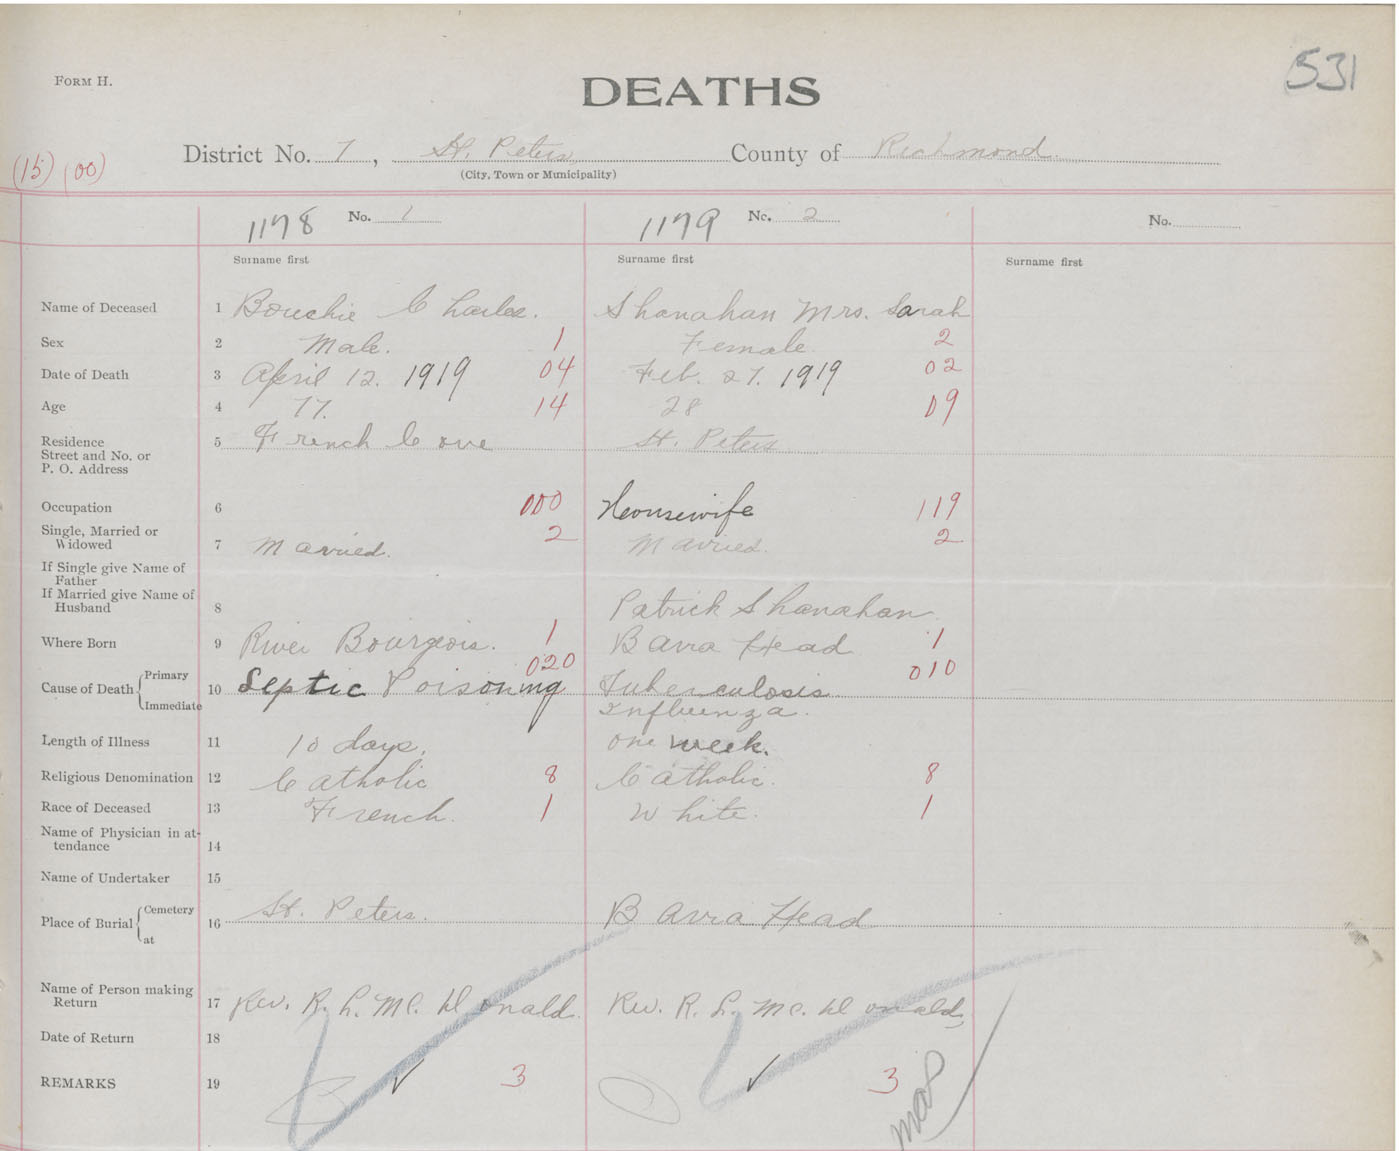 FORM H.
DEATHS
531
District No. 7, St. Peters County of Richmond.
(City, Town or Municipality)
(15) (00)
1178 No. 1 1179 No. 2 No.
Surname first Surname first Surname first
Name of Deceased 1 Bouchie Charles. Shanahan Mrs. Sarah
Sex 2 Male. 1 Female. 2
Date of Death 3 April 12. 1919 04 Feb. 27. 1919 02
Age 4 77. 14 28 09
Residence
Street and No. or
P. O. Address 5 French Cove St. Peters
Occupation 6 000 Housewife 119
Single, Married or
Widowed 7 Married. 2 Married. 2
If Single give Name of
Father
If Married give Name of
Husband 8 Patrick Shanahan
Where Born 9 River Bourgeois. 1 Barra Head 1
020 010
Cause of Death Primary
Immediate 10 Septic Poisoning Tuberculosis
Influenza.
Length of Illness 11 10 days. one week.
Religious Denomination 12 Catholic 8 Catholic. 8
Race of Deceased 13 French. 1 White. 1
Name of Physician in at-
tendance 14
Name of Undertaker 15
Place of Burial Cemetery
at 16 St. Peters. Barra Head
Name of Person making
Return 17 Rev. R. L. McDonald. Rev. R. L. McDonald,
Date of Return 18
REMARKS 19 3 3